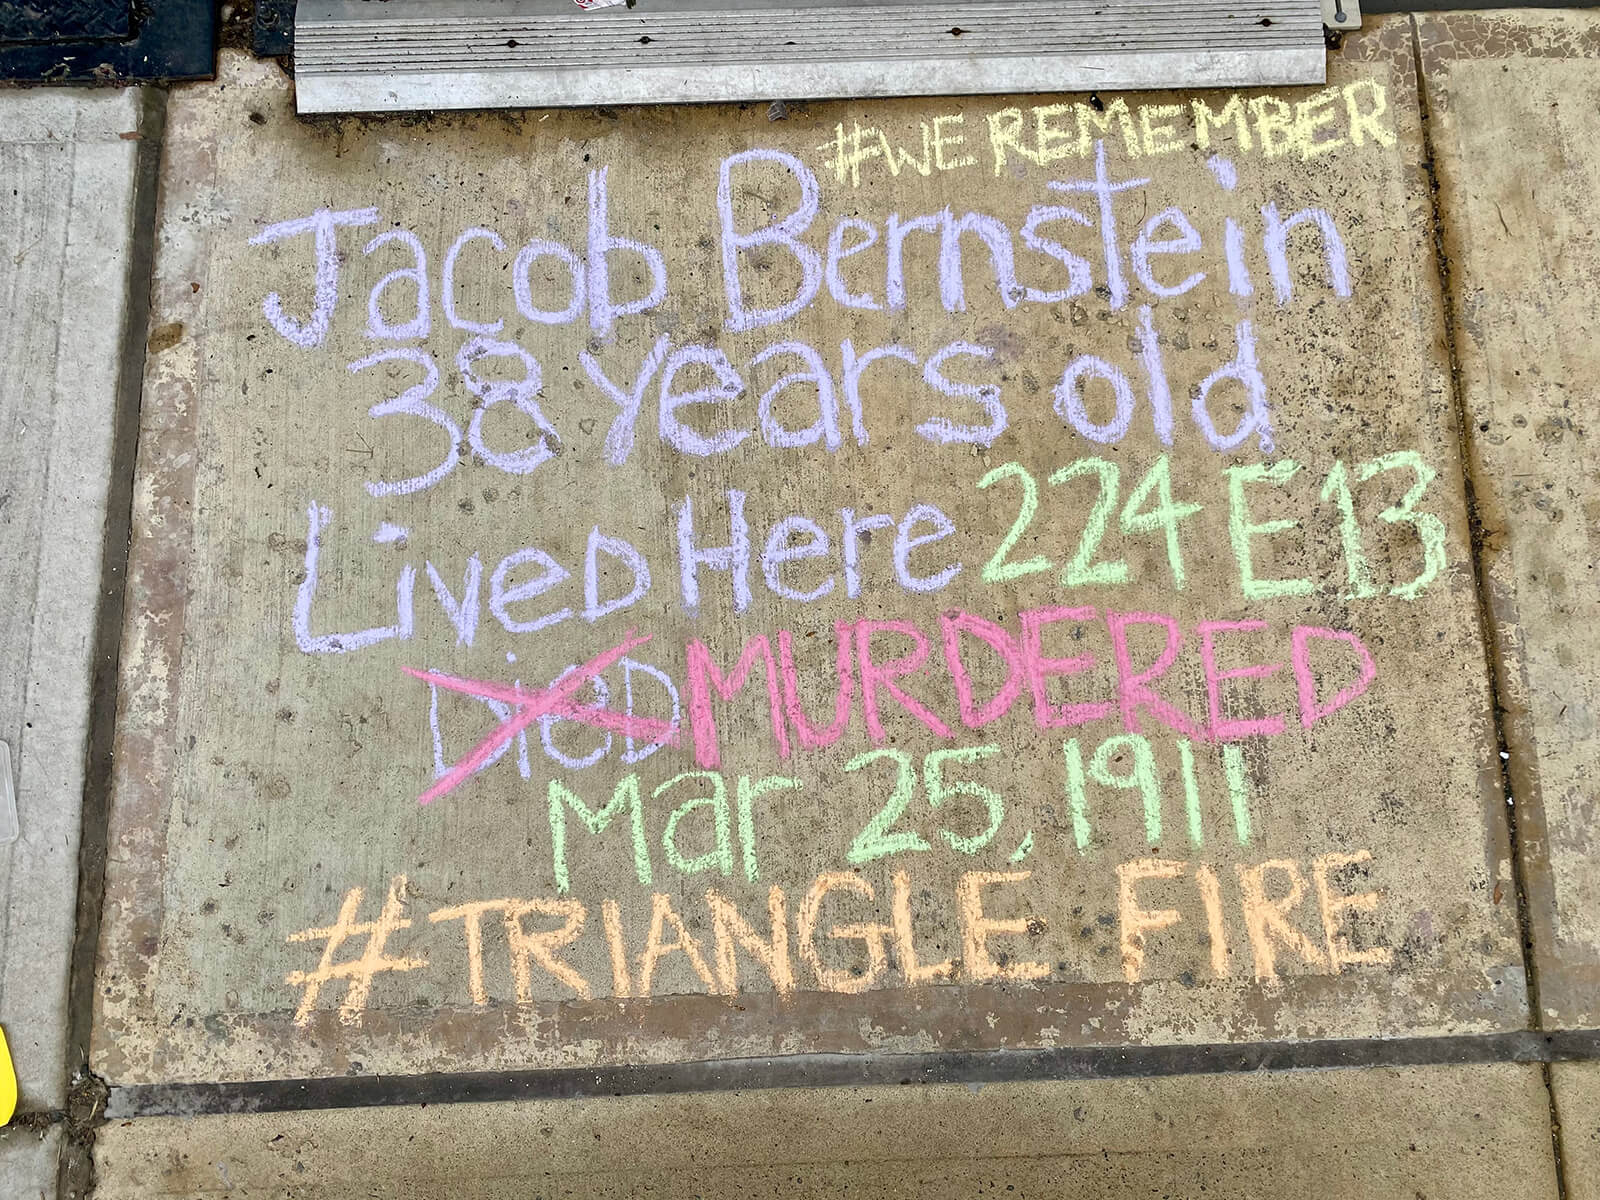 #WE REMEMBER
Jacob Bernstein
38 years old
Lived Here 224 E 13
Died MURDERED
Mar 25, 1911
#TRIANGLE FIRE